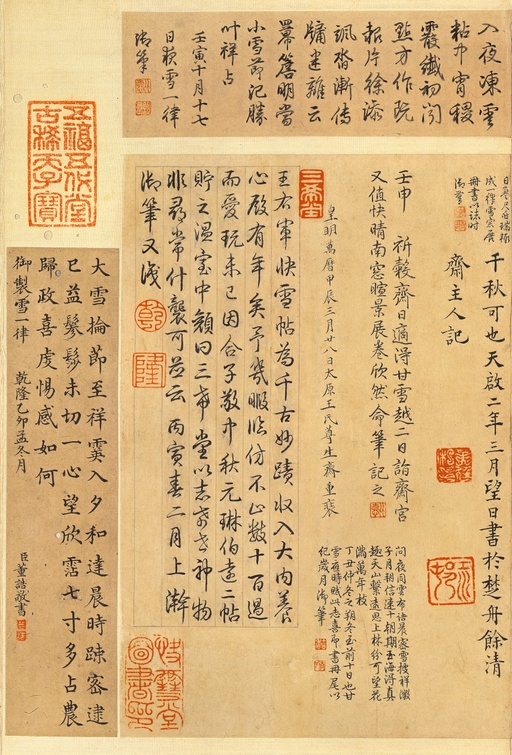 入夜凍雲
粘中宵稷
霰纖初
點方作
片徐添
颯沓漸傳
牖迷離云
冪簷明當
小雪節記勝
叶祥占
壬寅十月十七
日夜雪一律
御筆
成一律雪窓展
冊書以誌時
御筆
千秋可也天啟二年三月望日書於楚舟餘清
齋主人記
壬申 祈穀齋日適得甘雪越二日詣齋宮
又值快晴南窓暄景展卷欣然命筆記之
皇明萬曆甲辰三月廿八日太原王氏尊生齋重裝
同夜同雲布詰晨密雪接祥瀸
子月朝信達十朝期玉海得真
趣天山繫遠思上林紛可望花
滿萬年枝
丁丑仲冬之朔冬至前十日也甘
雪應時賦此志喜即書冊尾以
紀歲月御筆
三希堂
王右軍快雪帖為千古妙蹟收入大內養
心殿有年矣予幾暇臨仿不止數十百過
而愛玩未已因合子敬中秋元琳伯遠二帖
貯之溫室中顏曰三希堂以志希世神物
非尋常什襲可並云丙寅春二月上澣
御筆又識
乾
隆
五福五代堂
古稀天子寶
大雪掄節至祥霙入夕和達晨時踈密逮
巳益鬖髿未切一心望欣霑七寸多占農
歸政喜虔惕感如何
御製雪一律 乾隆乙卯孟冬月
臣董誥敬書